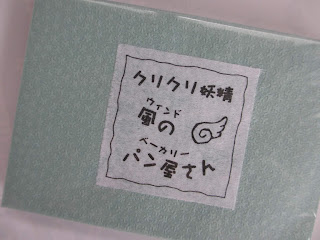 クリクリ妖精
ウィンド
風の
ベーカリー
パン屋さん